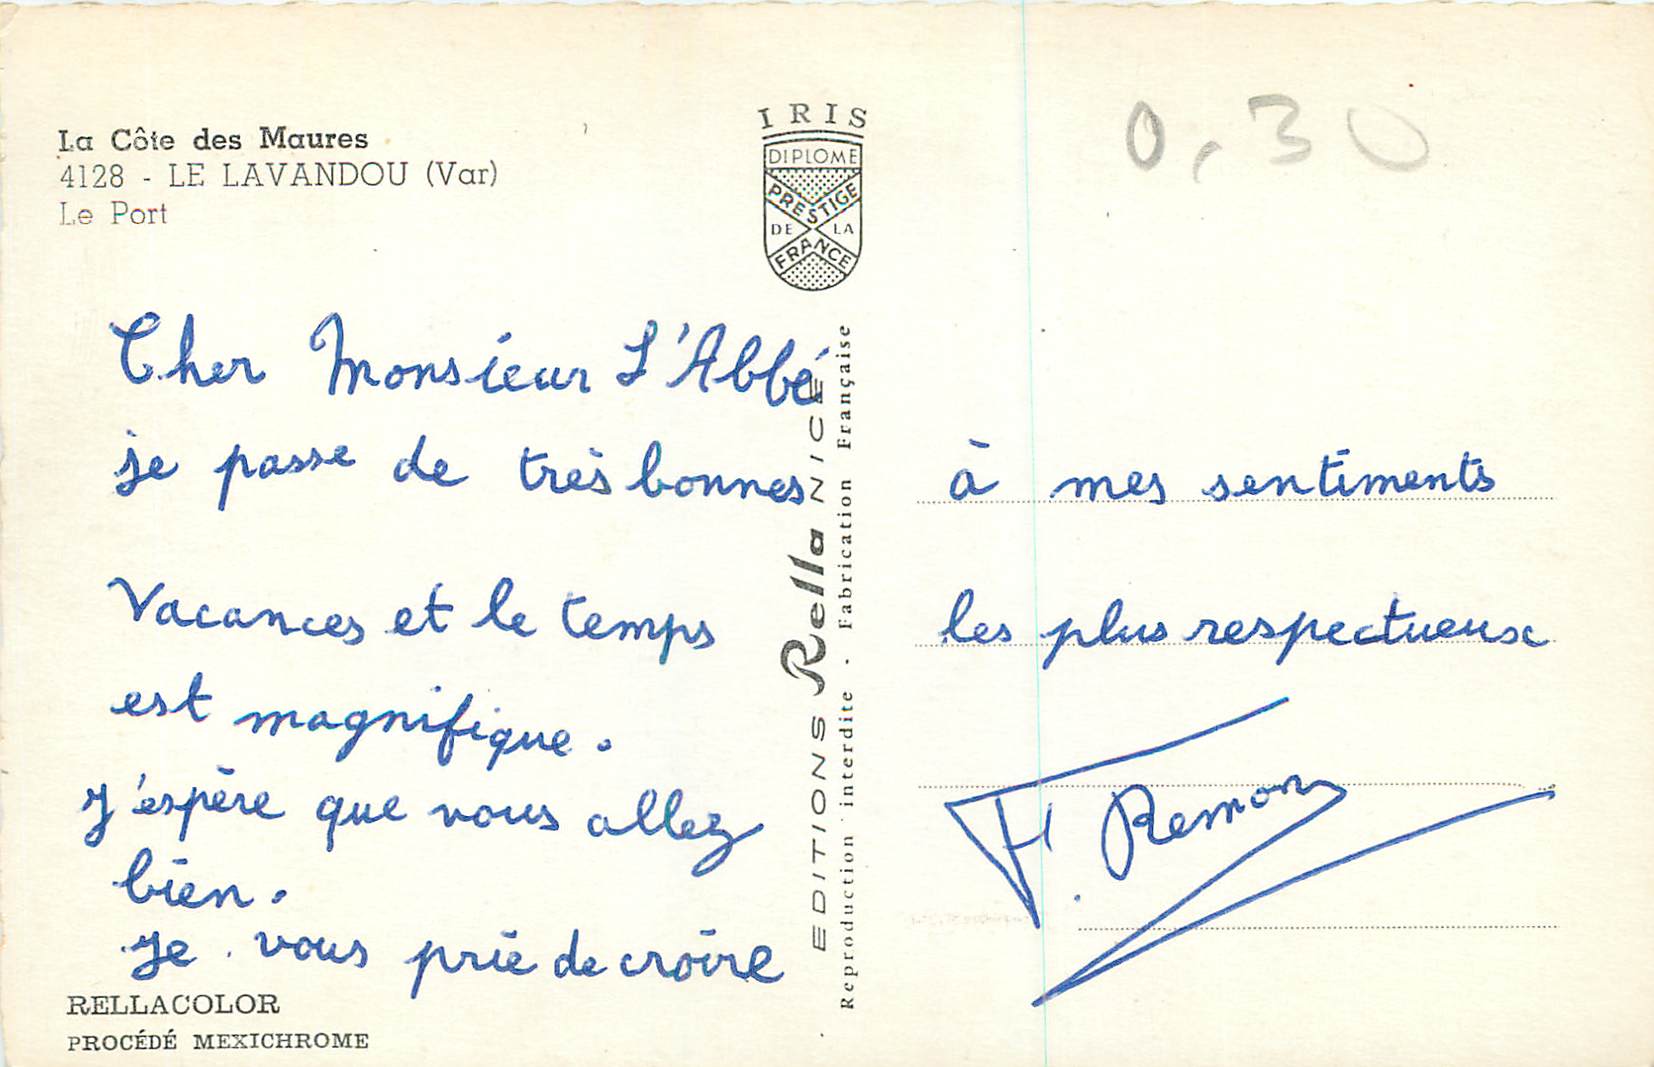 La Côte des Maures
4128 - LE LAVANDOU (Var)
Le Port
IRIS
DIPLOME
PRESTIGE
DE LA
FRANCE
0,30
Cher Monsieur L'Abbé
je passe de très bonnes
Vacances et le temps
est magnifique.
J'espère que vous allez
bien.
Je vous prie de croire
à mes sentiments
les plus respectueux
F. Remon
EDITIONS Rella NICE
Reproduction interdite - Fabrication Française
RELLACOLOR
PROCÉDÉ MEXICHROME